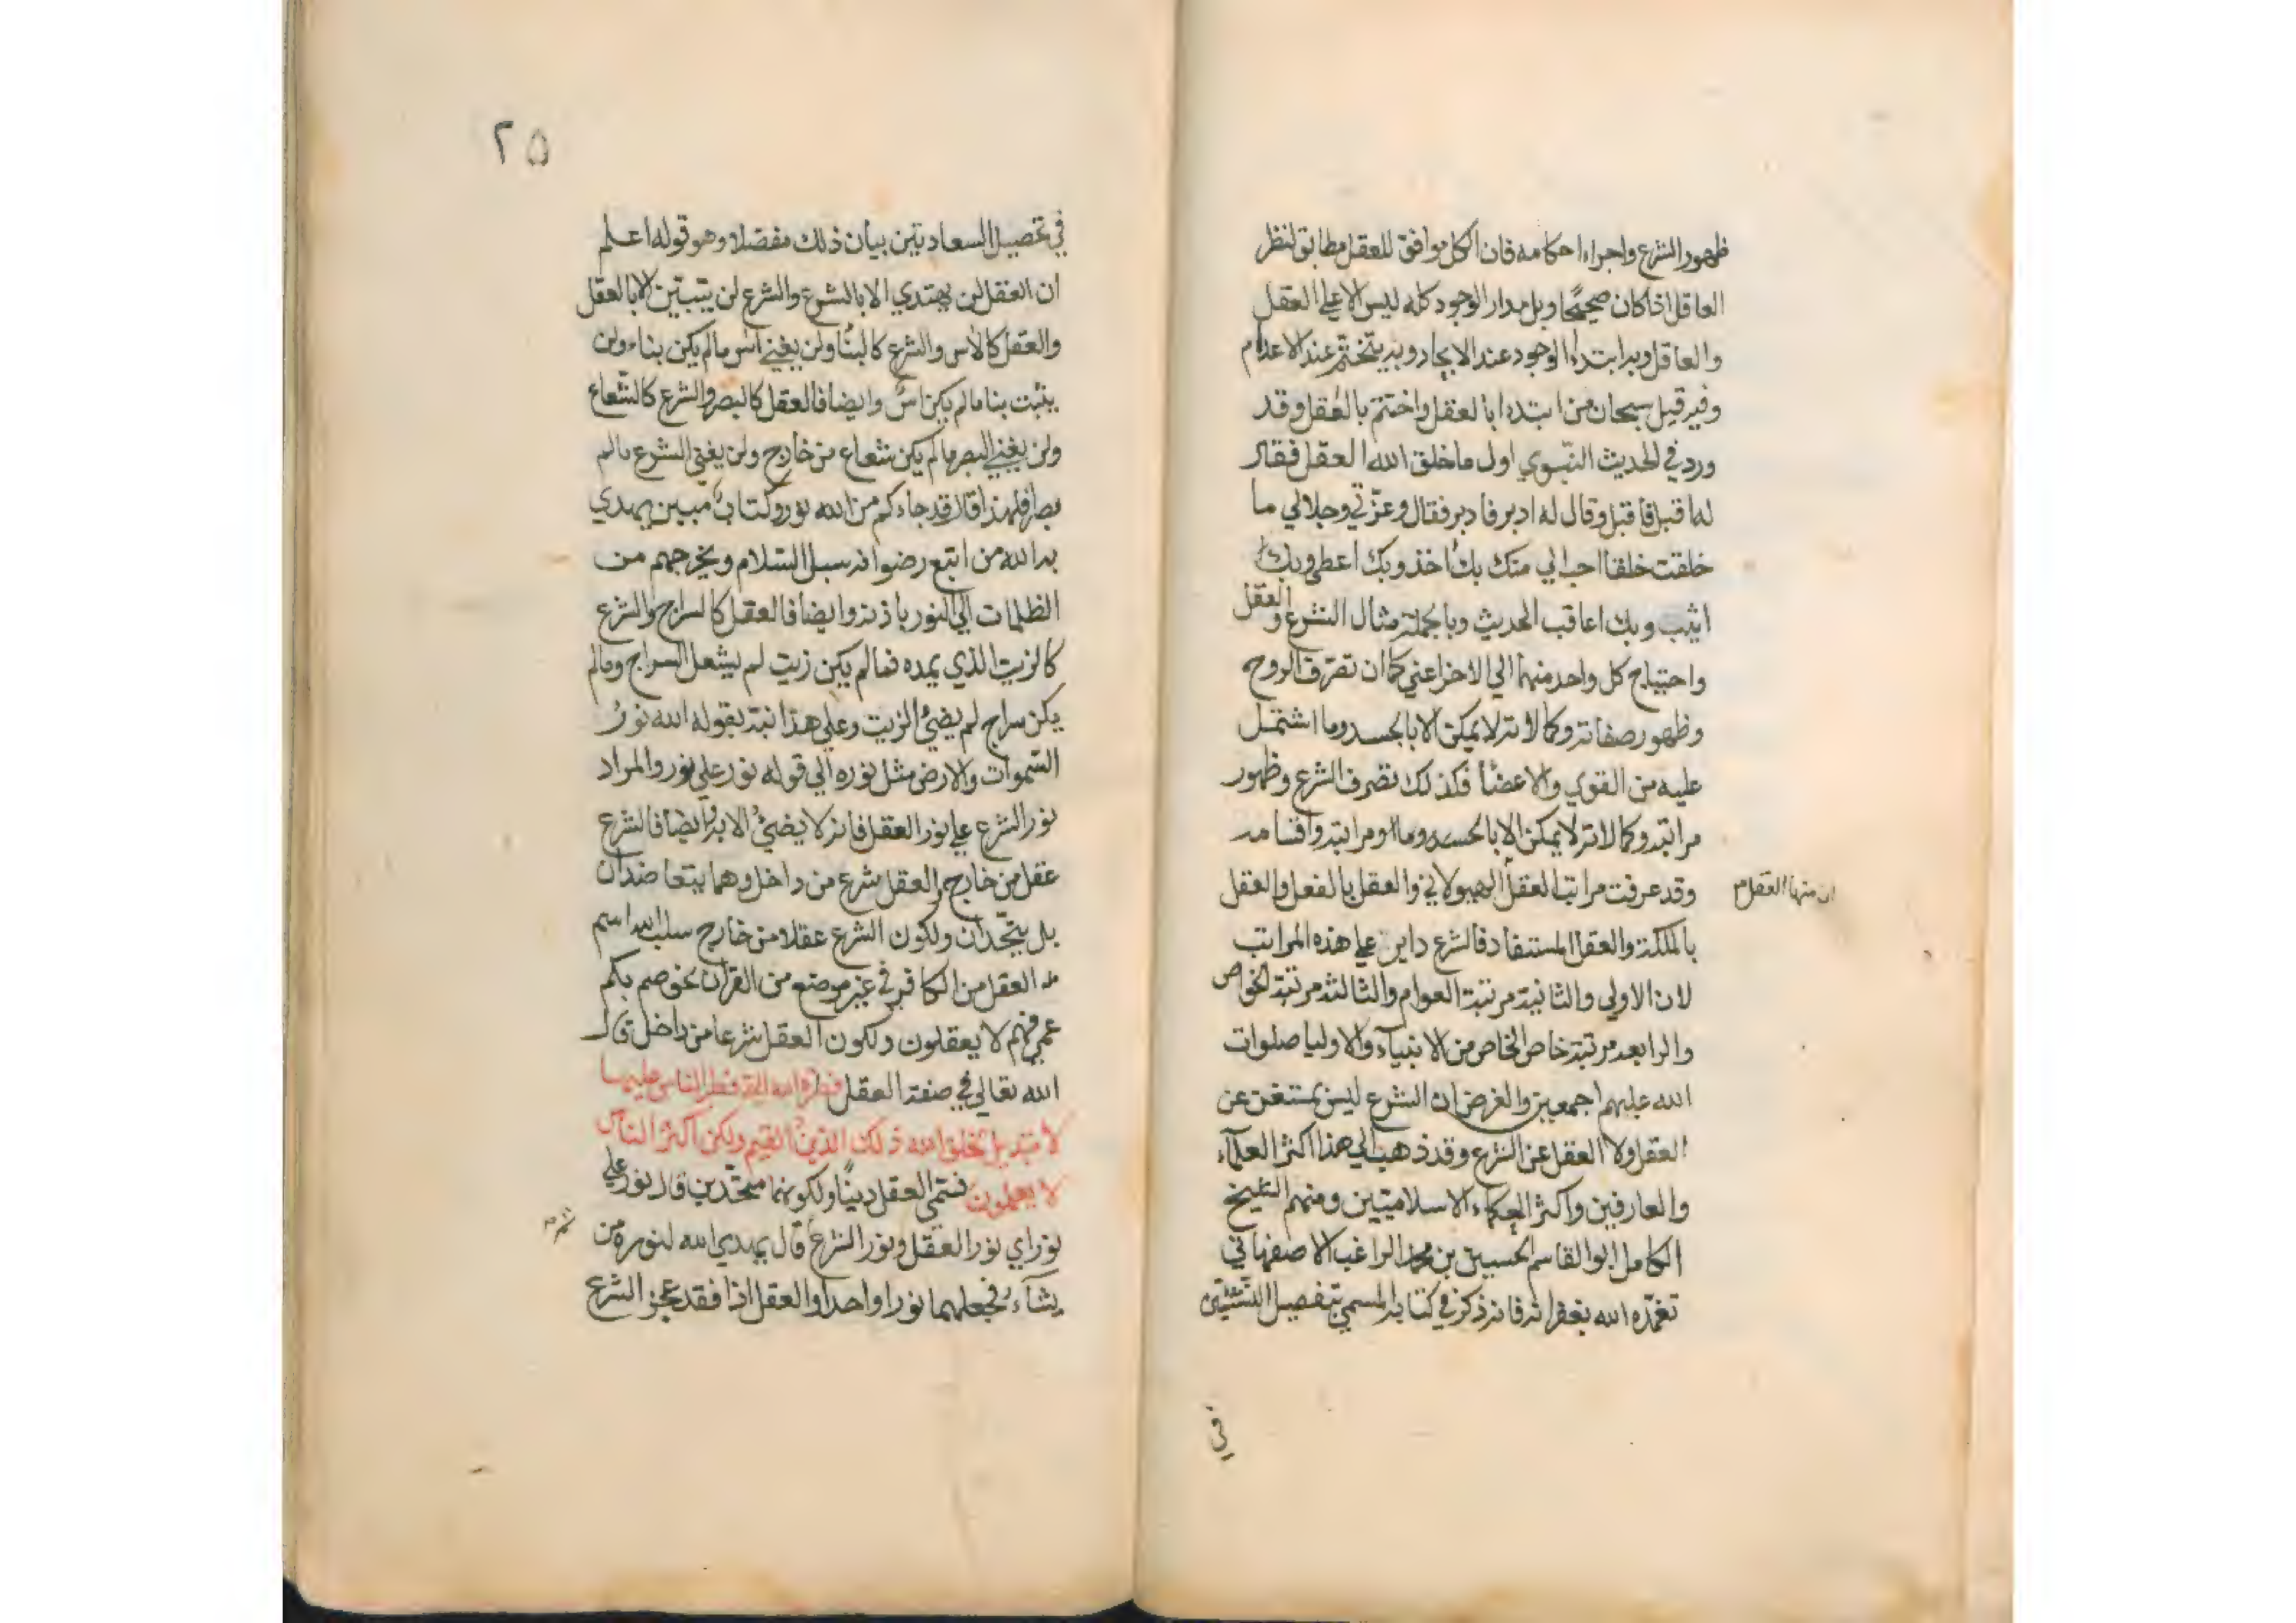 ظهور الشرع واجراء احكامه فان الكل موافق للعقل مطابق لنظر
العاقل اذا كان صحيحًا وبل مدار الوجود كله ليس الا على العقل
والعاقل وبه ابتداء الوجود عند الايجاد وبه يتختم عند الاعدام
وفيه قيل سبحان من ابتداء بالعقل واختتم بالعقل وقد
ورد في الحديث النبوي اول ما خلق الله العقل فقال
له اقبل فاقبل وقال له ادبر فادبر فقال وعزّتي وجلالي ما
خلقت خلقا احب الي منك بك اخذ وبك اعطي وبك
اثيب وبك اعاقب الحديث وبالجملة مثال الشرع والعقل
واحتياج كل واحد منهما الي الاخر اعني كما ان تصرف الروح
وظهور صفاته وكمالاته لا يمكن الا بالجسد وما اشتمل
عليه من القوي والاعضأ فكذلك تصرف الشرع وظهور
مراتبه وكمالاته لا يمكن الا بالحسد وما ومراتبه واقسامه
وقد عرفت مراتب العقل الهيولاني والعقل بالفعل والعقل
ان منها العقل
بالملكة والعقل المستفاد فالشرع داير على هذه المراتب
لان الاولي والثانية مرتبة العوام والثالثة مرتبة الخواص
والرابعه مرتبة خاص الخاص من الانبيآء والاوليا صلوات
الله عليهم اجمعين والغرض ان الشرع ليس بمستغن عن
العقل ولا العقل عن الشرع وقد ذهب الي هذا اكثر العلمآء
والعارفين واكثر الحكماء الاسلاميين ومنهم الشيخ
الكامل ابو القاسم الحسين بن محمد الراغب الاصفهاني
تغمّده الله بغفرانه فانه ذكر في كتابه المسمي بتفصيل النشئتين
في
٢٥
في تحصيل السعادتين بيان ذلك مفصلا وهو قوله اعلم
ان العقل لن يهتدي الا بالشرع والشرع لن يتبين الا بالعقل
والعقل كالاس والشرع كالبنأ ولن يغني اس ما لم يكن بناء ولن
يثبت بنا ما لم يكن اسّ وايضا فالعقل كالبصر والشرع كالشعاع
ولن يغني البصر ما لم يكن شعاع من خارج ولن يغني الشرع ما لم
بصر فلهذا قال قد جاءكم من الله نور وكتاب مبين يهدي
به الله من اتبع رضوانه سبل السّلام ويخرجهم من
الظلمات الي النور باذنه وايضا فالعقل كالسراج والشرع
كالزيت الذي يمده فما لم يكن زيت لم يشعل السراج وما لم
يكن سراج لم يضيئ الزيت وعلى هذا نبه بقوله الله نورُ
السّموات والارض مثل نوره الي قوله نور علي نور والمراد
نور الشرع على نور العقل فانه لا يضيئُ الا به وايضا فالشرع
عقل من خارج والعقل شرع من داخل وهما يتعاضدان
بل يتّحدان ولكون الشرع عقلا من خارج سلب الله اسم
العقل من الكافر في غير موضع من القرآن نحو صم بكم
عمي فهم لا يعقلون ولكون العقل شرعا من داخل قال
الله تعالي في صفة العقل فطرة الله التي فطر الناس عليها
لا تبديل لخلق الله ذلك الدين القيم ولكن اكثر الناس
لا يعلمون فسمّي العقل دينًا ولكونهما متحّدين قال نور علي
نور اي نور العقل ونور الشرع قال يهدي الله لنوره من
ثم
يشآء فجعلهما نورا واحدا والعقل اذا فقد عجز الشرع